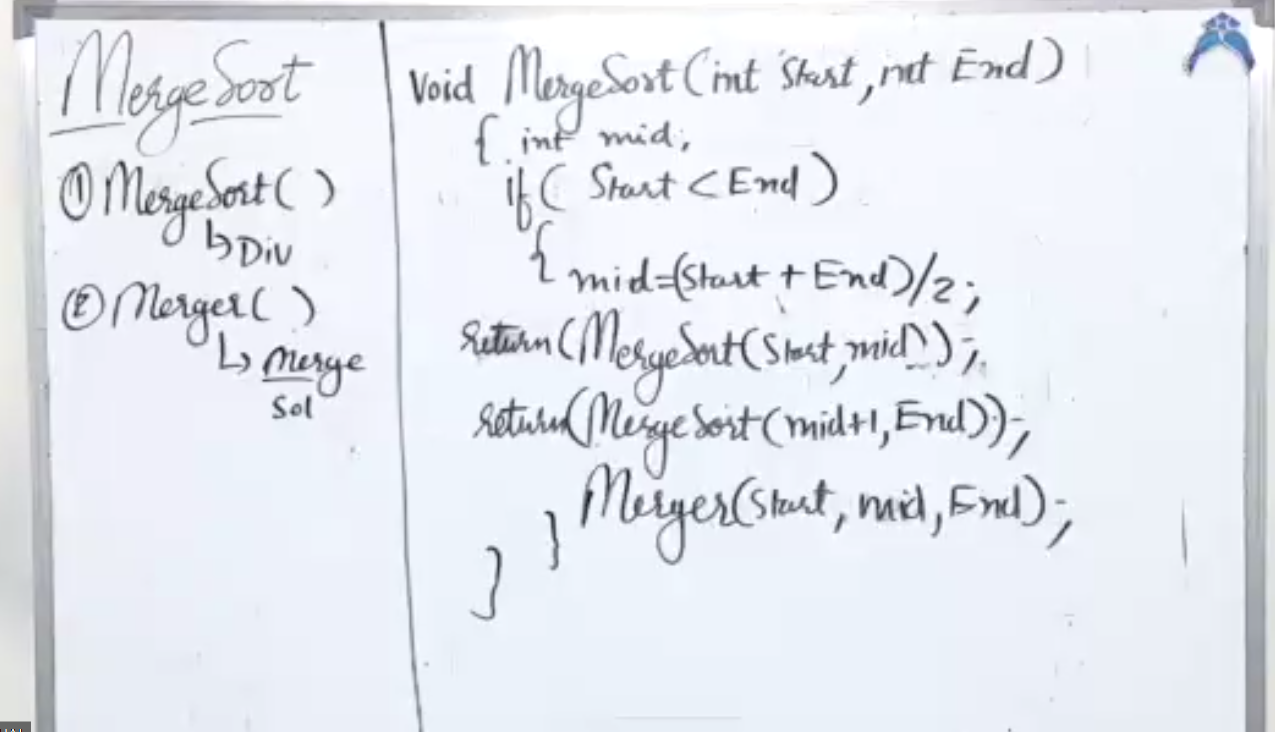 MergeSort
① MergeSort( )
↳ Div
② Merger( )
↳ Merge
Sol
Void MergeSort(int Start, int End)
{ int mid;
if( Start < End )
{ mid=(Start + End)/2;
return(MergeSort(Start,mid));
return(MergeSort(mid+1,End));
Merger(Start, mid, End);
}
}